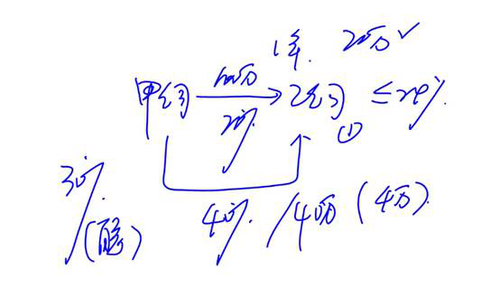 1年. 20万√
100万
甲公司 → 乙公司 ≤24%.
20%
①
30%
40% / 40万 (4万).